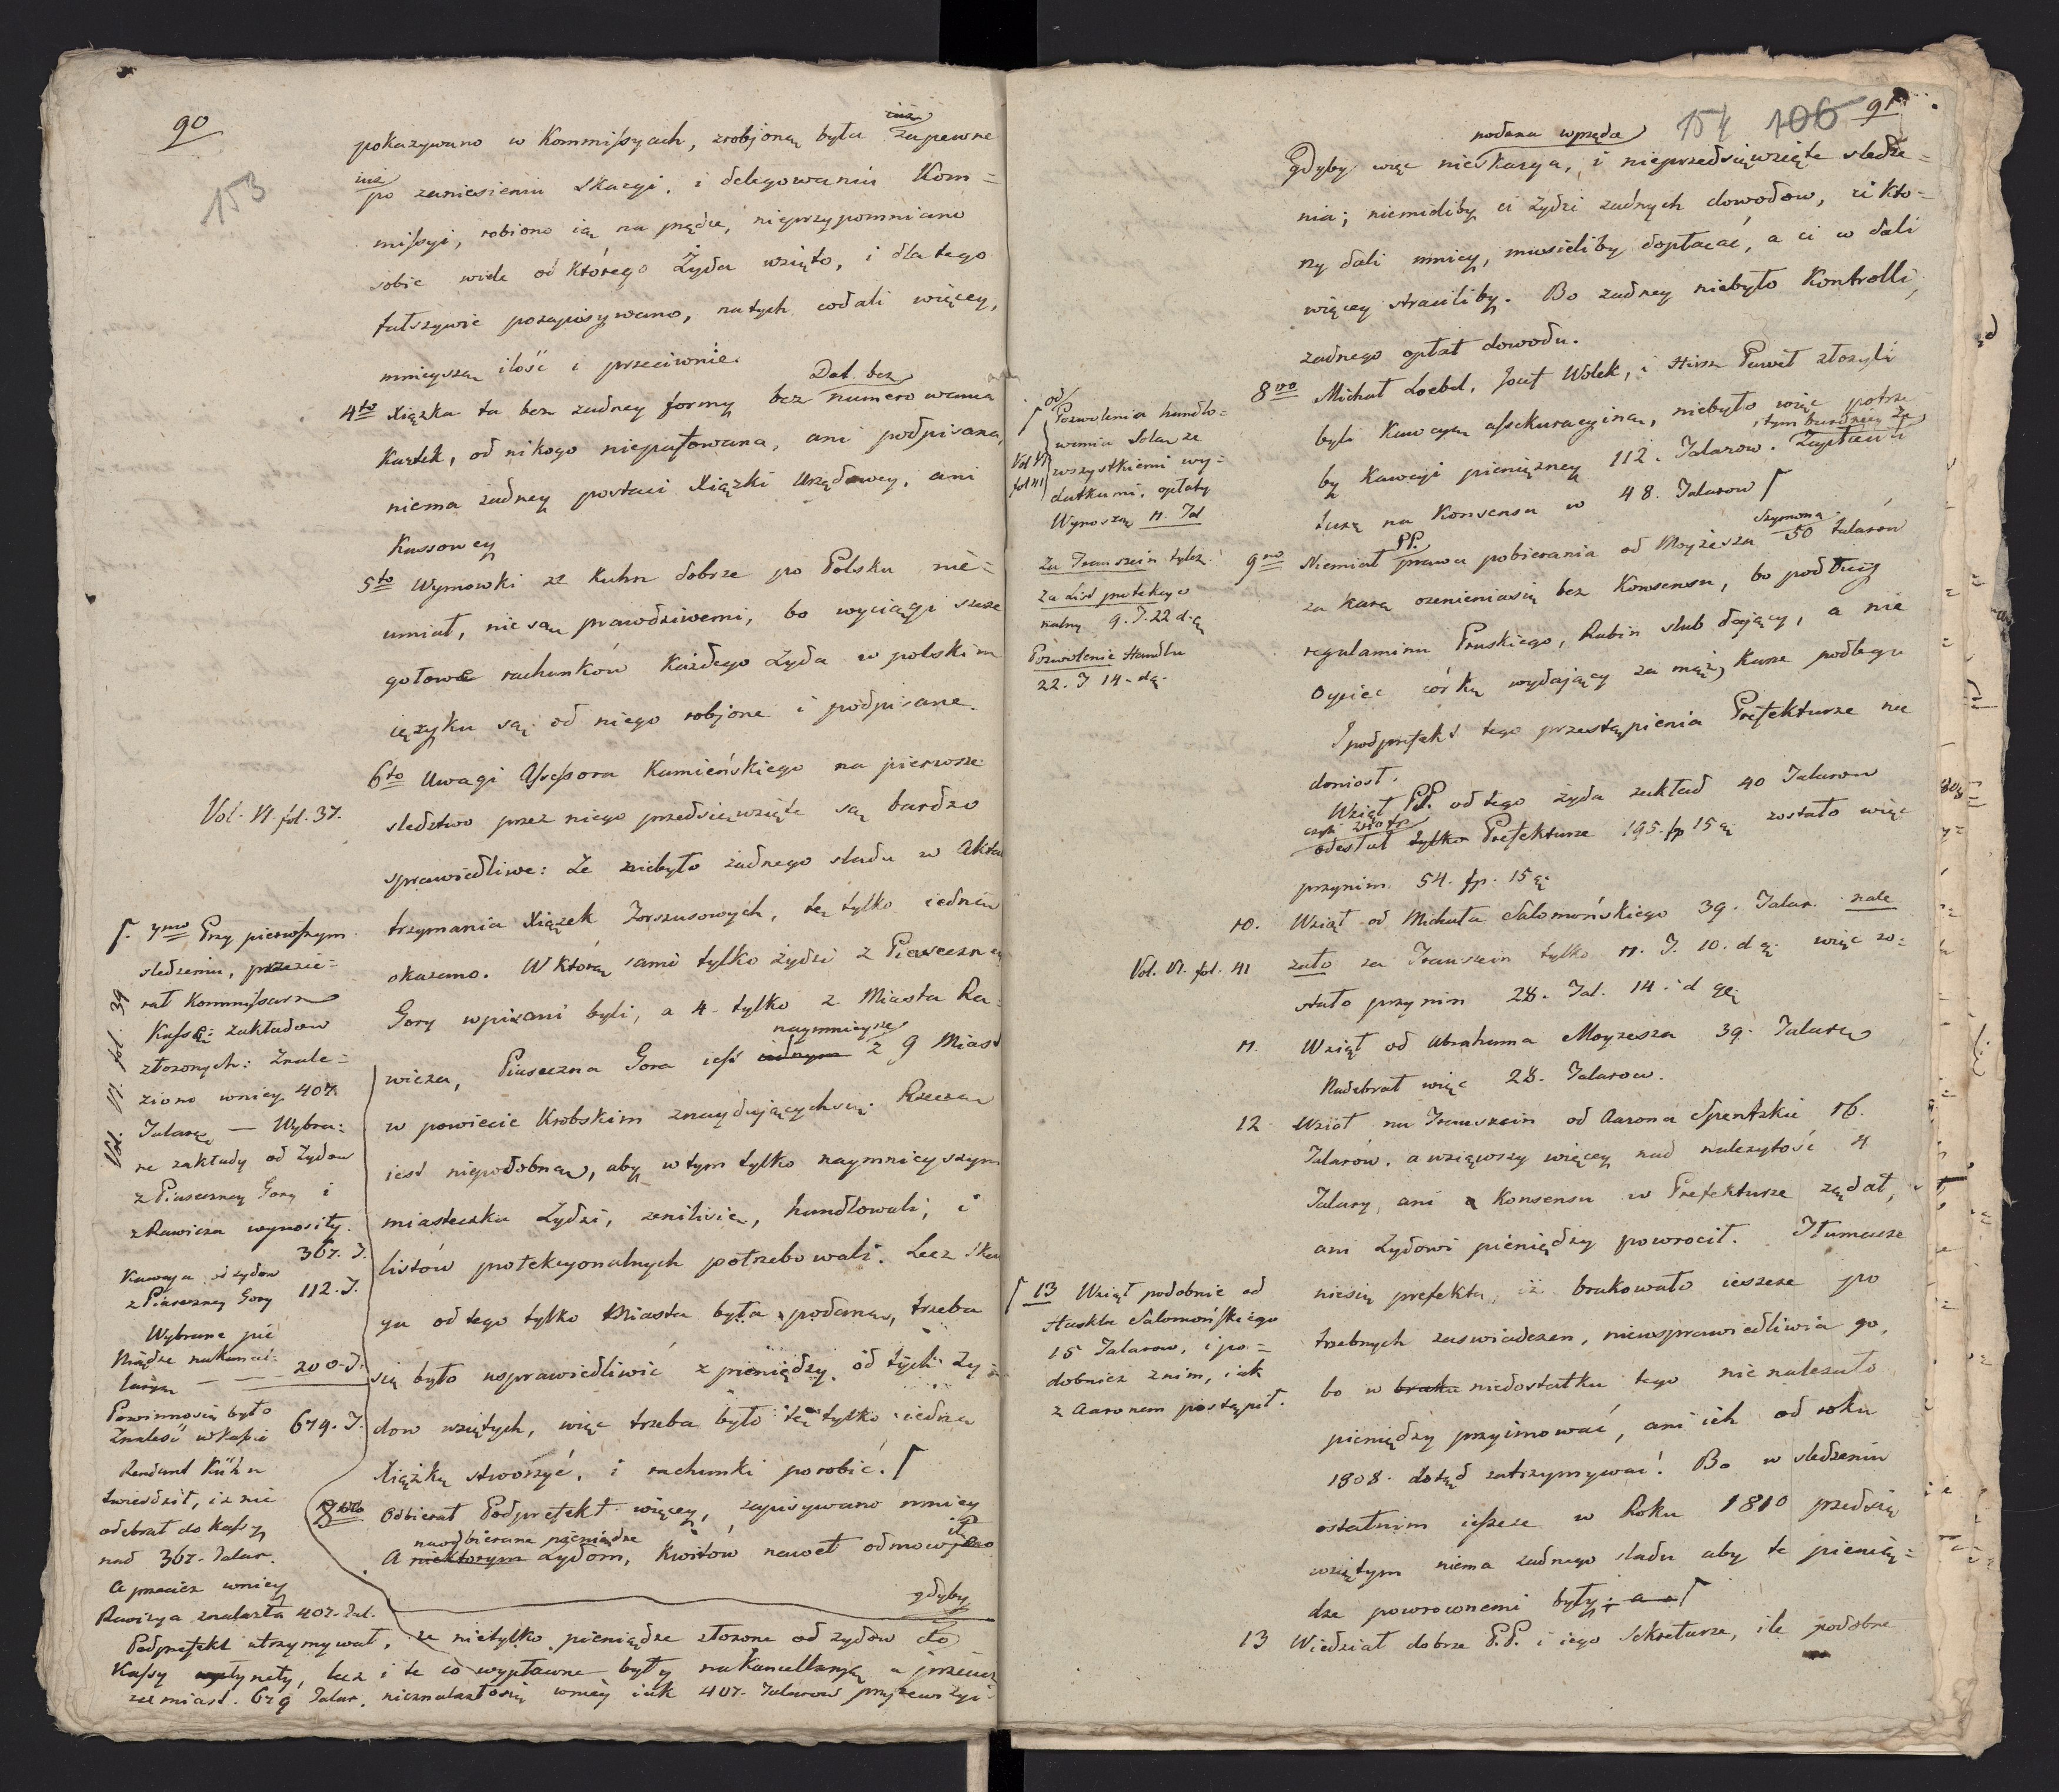 90
153
iuz
pokazywano w Kommissyach, zrobjoną była zapewne
iuz
po zaniesieniu skargi, i delegowaniu Kom=
missyi, robiono ią na prędce, nieprzypomniano
sobie wiele od którego Żyda wzięto, i dla tego
fałszywie pozapisywano, na tych codali więcey,
mnieyszą ilość i przeciwnie.
Dat. bez
4to Xiązka ta bez żadney formy bez numerowania
Kartek, od nikogo nieparafowana, ani podpisana,
niema żadney postaci Xiązki Urzędowey, ani
Kassowey
5to Wymowki ze Kuhn dobrze po Polsku nie=
umiał, nie są prawdziwemi, bo wyciągi szcze
gołowe rachunków Każdego Żyda w polskim
ięzyku są od niego robjone i podpisane.
6to Uwagi Assessora Kamieńskiego na pierwsze
Vol. VI. fol. 37.
sledztwo przez niego przedsięwzięte są bardzo
sprawiedliwe: Ze niebyło żadnego sladu w Akta
trzymania Xiązek Zorszusowych, tę tylko iednę
okazano. W którą sami tylko żydzi z Piaseczney
Gory wpisani byli, a 4 tylko z Miasta Ra=
naymnieysze
wicza, Piaseczna Gora iest iednym z 9 Miast
w powiecie Krobskim znayduiących się. Rzeczą
iest niepodobną, aby w tym tylko naymnieyszym
miasteczku Żydzi, żenilisię, handlowali, i
listów protekcyonalnych potrzebowali. Lecz Skar
ga od tego tylko Miasta była podana, trzeba
się było usprawiedliwić z pieniędzy od tych Ży=
dow wziętych, więc trzeba było tę tylko iednę
Xiązkę stworzyć, i rachunki porobić. Γ
Odbierał Podprefekt więcey, zapisywano mniey
naodbierane pieniądze
A niektorym Żydom, Kwitów nawet odmowiono
gdyby
Γ. 7mo Przy pierwszym
sledzeniu, przezie=
rał Kommissarz
Kassę: zakładow
złozonych: Znale=
ziono wniey 407.
Talarów — Wybra=
ne zakłady od Żydow
z Piaseczney Gory i
z Rawicza wynosiły
367. T.
Kaucya od zydow
z Piaseczney Gory 112. T.
Wybrane pie
niądze nakancel=
laryą — 200. T.
Powinnosię było
Znaleść w Kassie 679. T.
Rendant Kühn
twierdził, iz nie
odebrał do Kassy
nad 367. Talar.
A przeciez wniey
Rewizya znalazła 407. Tal.
Vol. VI. fol. 39
Podprefekt utrzymywał, ze nietylko pieniądze złozone od zydow do
Kassy wpłynęły, lecz i te co wypławne były nakancellaryą a przeciez
zamiast. 679 Talar. nieznalazłosię wniey iak 407. Talarow przy rewizyi
91
154 106
podana wprędce
Gdyby więc nie Skarga, i nieprzedsięwzięte sledze=
nia; niemieliby ci żydzi żadnych dowodow, ci kto=
rzy dali mniey, musieliby dopłacać, a ci co dali
więcey straciliby. Bo żadney niebyło Kontrolli,
zadnego opłat dowodu.
8vo Michał Loebel, Jozef Wolek, i Hirsz Paweł złozyli
byli Kaucyą assekuracyiną, niebyło więc potrze
, tym bardziey ze
by Kaucyi pienięzney 112. Talarow. Zapłacili
tuxę na Konsensa w 48. Talarow Γ
od/
Γ Pozwolenia handlo=
wania Solą ze
wszystkiemi wy=
datkami, opłaty
Wynoszą 11. Tal
Vol VI
fol 41
Za Trauszein tylez
Za List protekcyo
nalny 9. T. 22 dg.
Pozwolenie Handlu
22. T 14. dg.
PP. Szymona
9no Niemiał prawa pobierania od Moyzesza 50 talarów
za karę ozenieniasię bez Konsensu, bo podług
regulaminu Pruskiego, Rabin slub daiący, a nie
Oyciec córkę wydaiący za mąż, Karze podlega
I podprefekt tego przestąpienia Prefekturze nie
doniosł.
Wziął P.P. od tego żyda zakład 40 Talarow
odesłał tylko Prefekturze 195. fp 15 g zostało więc
przynim 54. fp. 15 g.
10. Wziął od Michała Salomońskiego 39. Talar. nale
Vol. VI. fol. 41
zało za Trauszein tylko 11. T. 10. dg. więc zo=
stało przy nim 28. Tal. 14. d gr.
11. Wziął od Abrahama Moyzesza 39. Talarow
Nadebrał więc 28. Talarow.
12 Wział na Trauszein od Aarona Spentzkie 16.
Talarów. a wziąwszy więcey nad nalezytość 4
Talary, ani Konsensu w Prefekturze żądał,
ani Żydowi pieniędzy powrocił. Tłumacze
niesię prefekta, iż brakowało ieszcze po
trzebnych zaswiadczen, nieusprawiedliwia go,
bo w braku niedostatku tego nie nalezało
pieniędzy przyimować, ani ich od roku
1808. dotąd zatrzymywać! Bo w sledzeniu
ostatnim ieszcze w Roku 1810 przedsię
wziętym niema zadnego sladu aby te pienią=
dze powroconemi były; a Γ
Γ 13 Wziął podobnie od
Haskla Salomońskiego
15 Talarow, i po=
dobniez znim, iak
z Aaronem postąpił.
13 Wiedział dobrze P.P. i iego Sekretarze, ile podobne